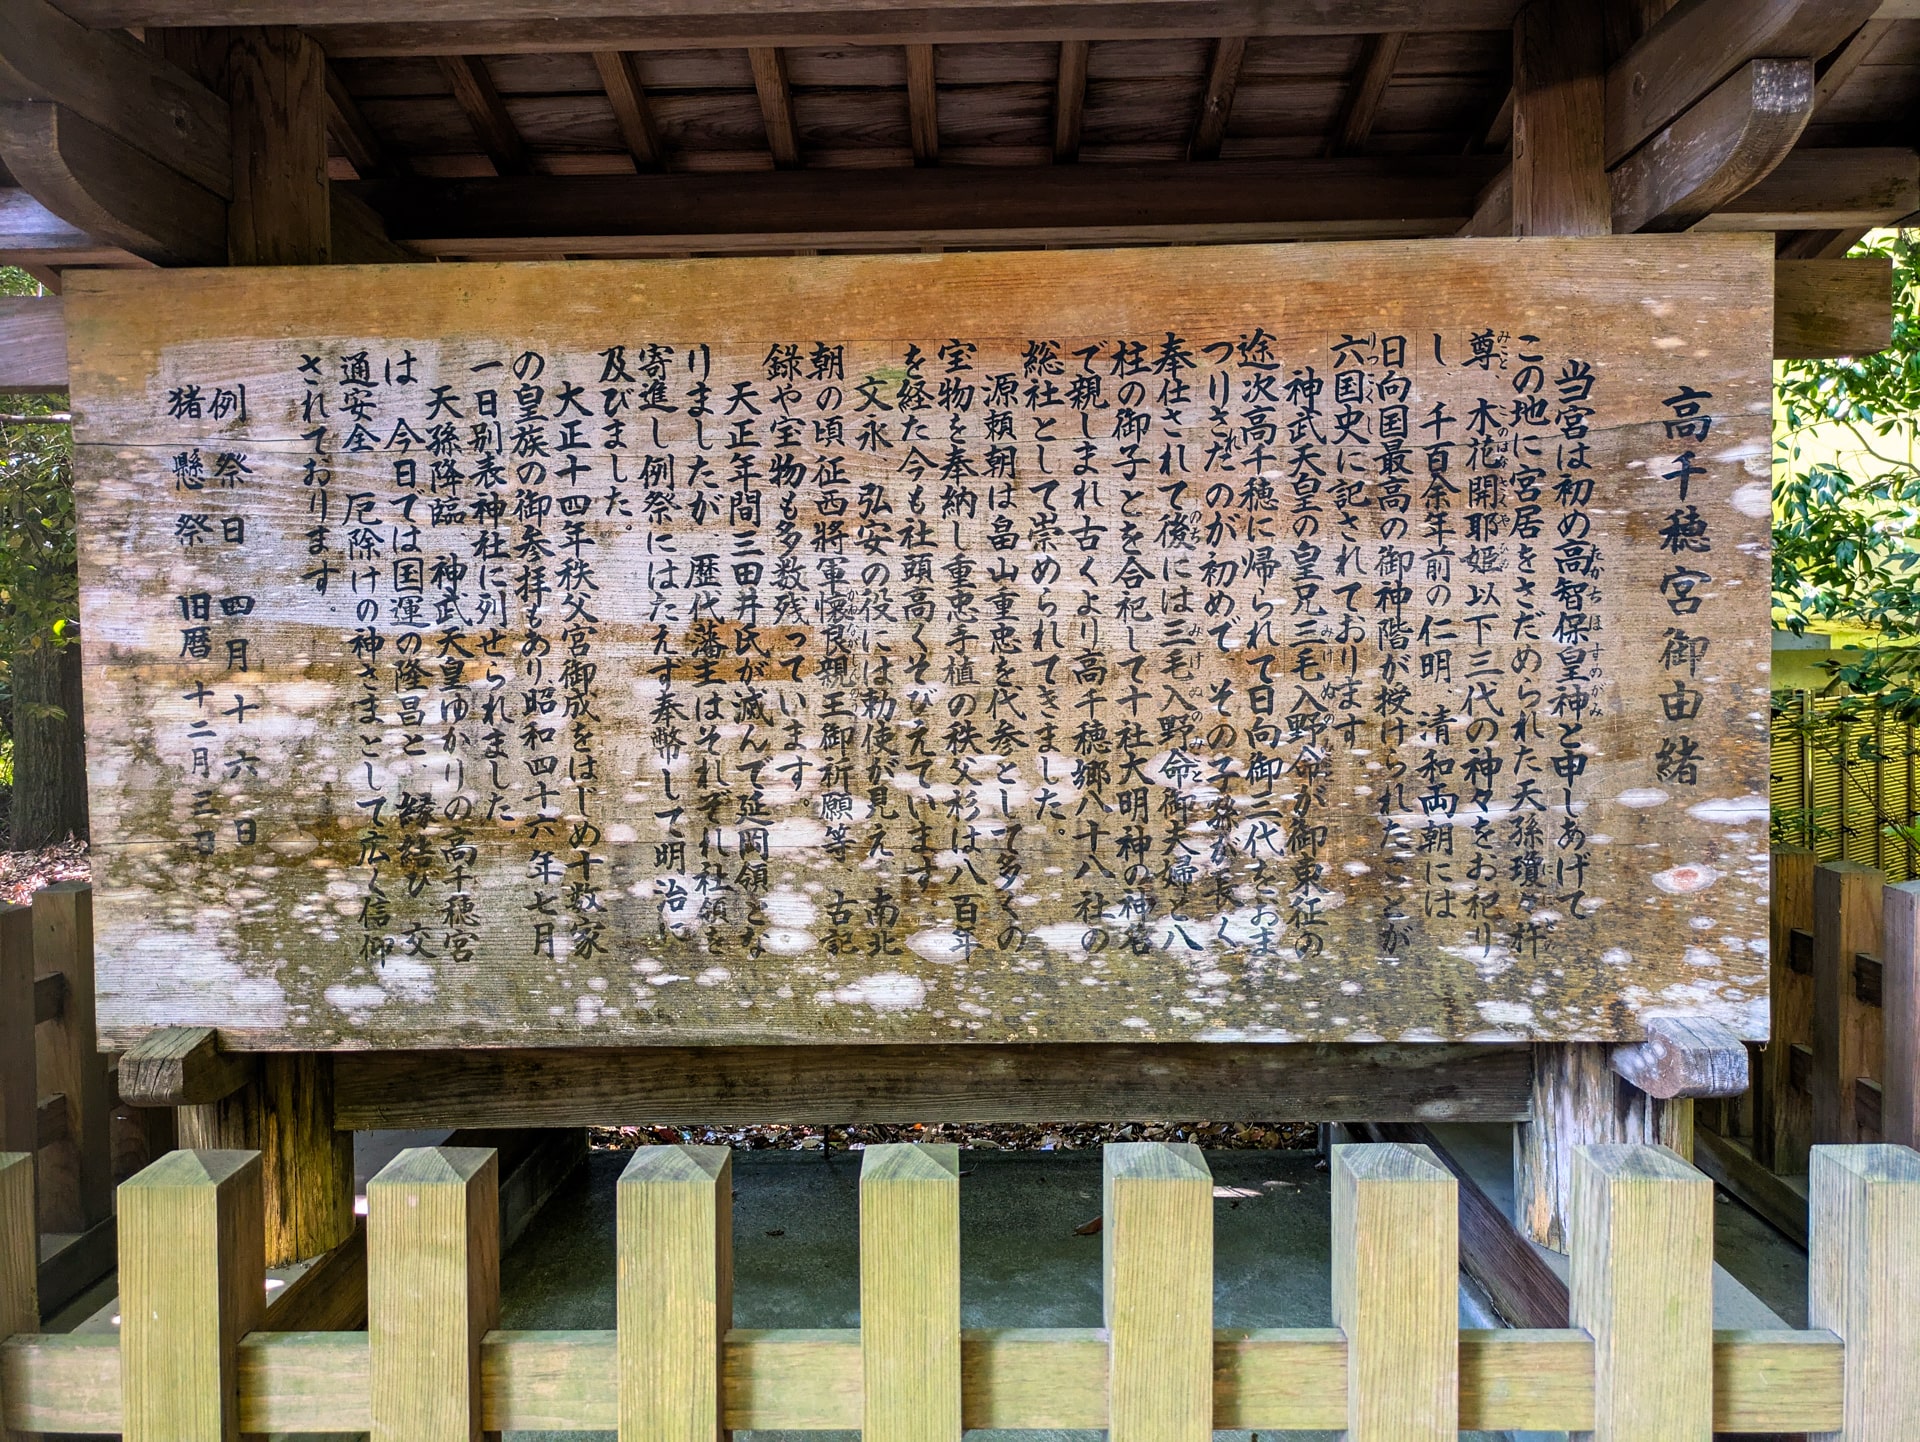 高千穂宮御由緒
当宮は初め高智保皇神と申しあげて
この地に宮居をさだめられた天孫瓊々杵
尊、木花開耶姫以下三代の神々をお祀り
し、千百余年前の仁明、清和両朝には
日向国最高の御神階が授けられたことが
六国史に記されております。
神武天皇の皇兄三毛入野命が御東征の
途次高千穂に帰られて日向御三代をおま
つりされたのが初めで、その子孫が長く
奉仕されて後には三毛入野命御夫婦と八
柱の御子とを合祀して十社大明神の神名
で親しまれ古くより高千穂郷八十八社の
総社として崇められてきました。
源頼朝は畠山重忠を代参として多くの
宝物を奉納し重忠手植の秩父杉は八百年
を経た今も社頭高くそびえています。
文永、弘安の役には勅使が見え、南北
朝の頃征西将軍懐良親王御祈願等、古記
録や宝物も多数残っています。
天正年間三田井氏が滅んで延岡領とな
りましたが、歴代藩主はそれぞれ社領を
寄進し例祭にはたえず奉幣して明治に
及びました。
大正十四年秩父宮御成をはじめ十数家
の皇族の御参拝もあり昭和四十六年七月
一日別表神社に列せられました。
天孫降臨、神武天皇ゆかりの高千穂宮
は、今日では国運の隆昌と、縁結び、交
通安全、厄除けの神さまとして広く信仰
されております。
例祭日 四月十六日
猪懸祭 旧暦十二月三日